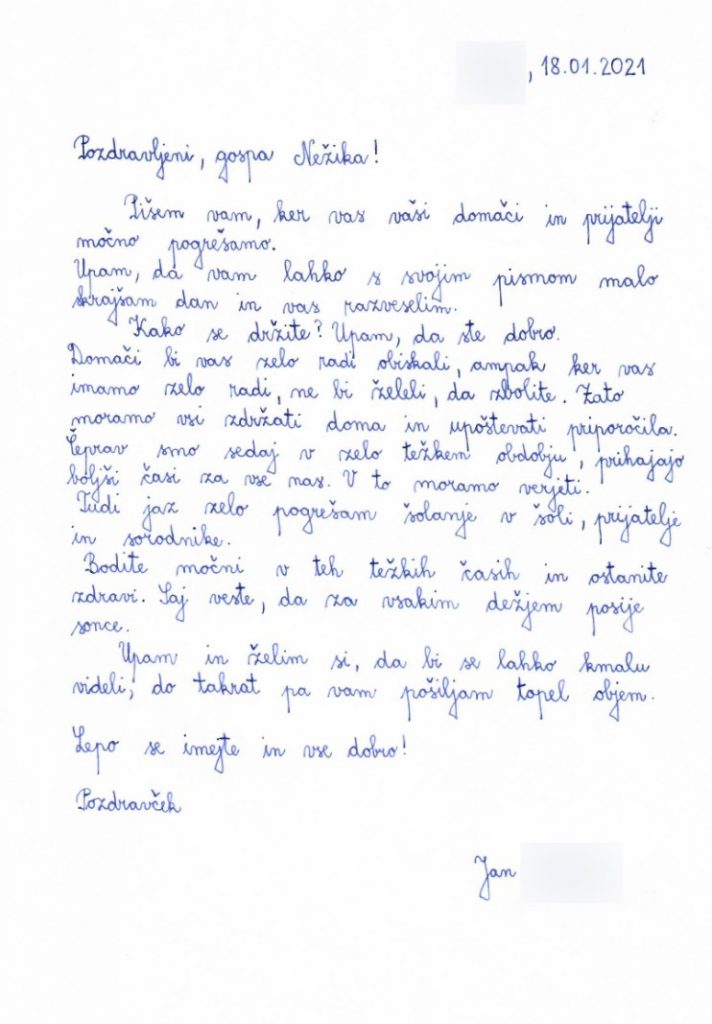 , 18.01.2021
Pozdravljeni, gospa Nežika!
Pišem vam, ker vas vaši domači in prijatelji
močno pogrešamo.
Upam, da vam lahko s svojim pismom malo
skrajšam dan in vas razveselim.
Kako se držite? Upam, da ste dobro.
Domači bi vas zelo radi obiskali, ampak ker vas
imamo zelo radi, ne bi želeli, da zbolite. Zato
moramo vsi zdržati doma in upoštevati priporočila.
Čeprav smo sedaj v zelo težkem obdobju, prihajajo
boljši časi za vse nas. V to moramo verjeti.
Tudi jaz zelo pogrešam šolanje v šoli, prijatelje
in sorodnike.
Bodite močni v teh težkih časih in ostanite
zdravi. Saj veste, da za vsakim dežjem posije
sonce.
Upam in želim si, da bi se lahko kmalu
videli, do takrat pa vam pošiljam topel objem.
Lepo se imejte in vse dobro!
Pozdravček
Jan